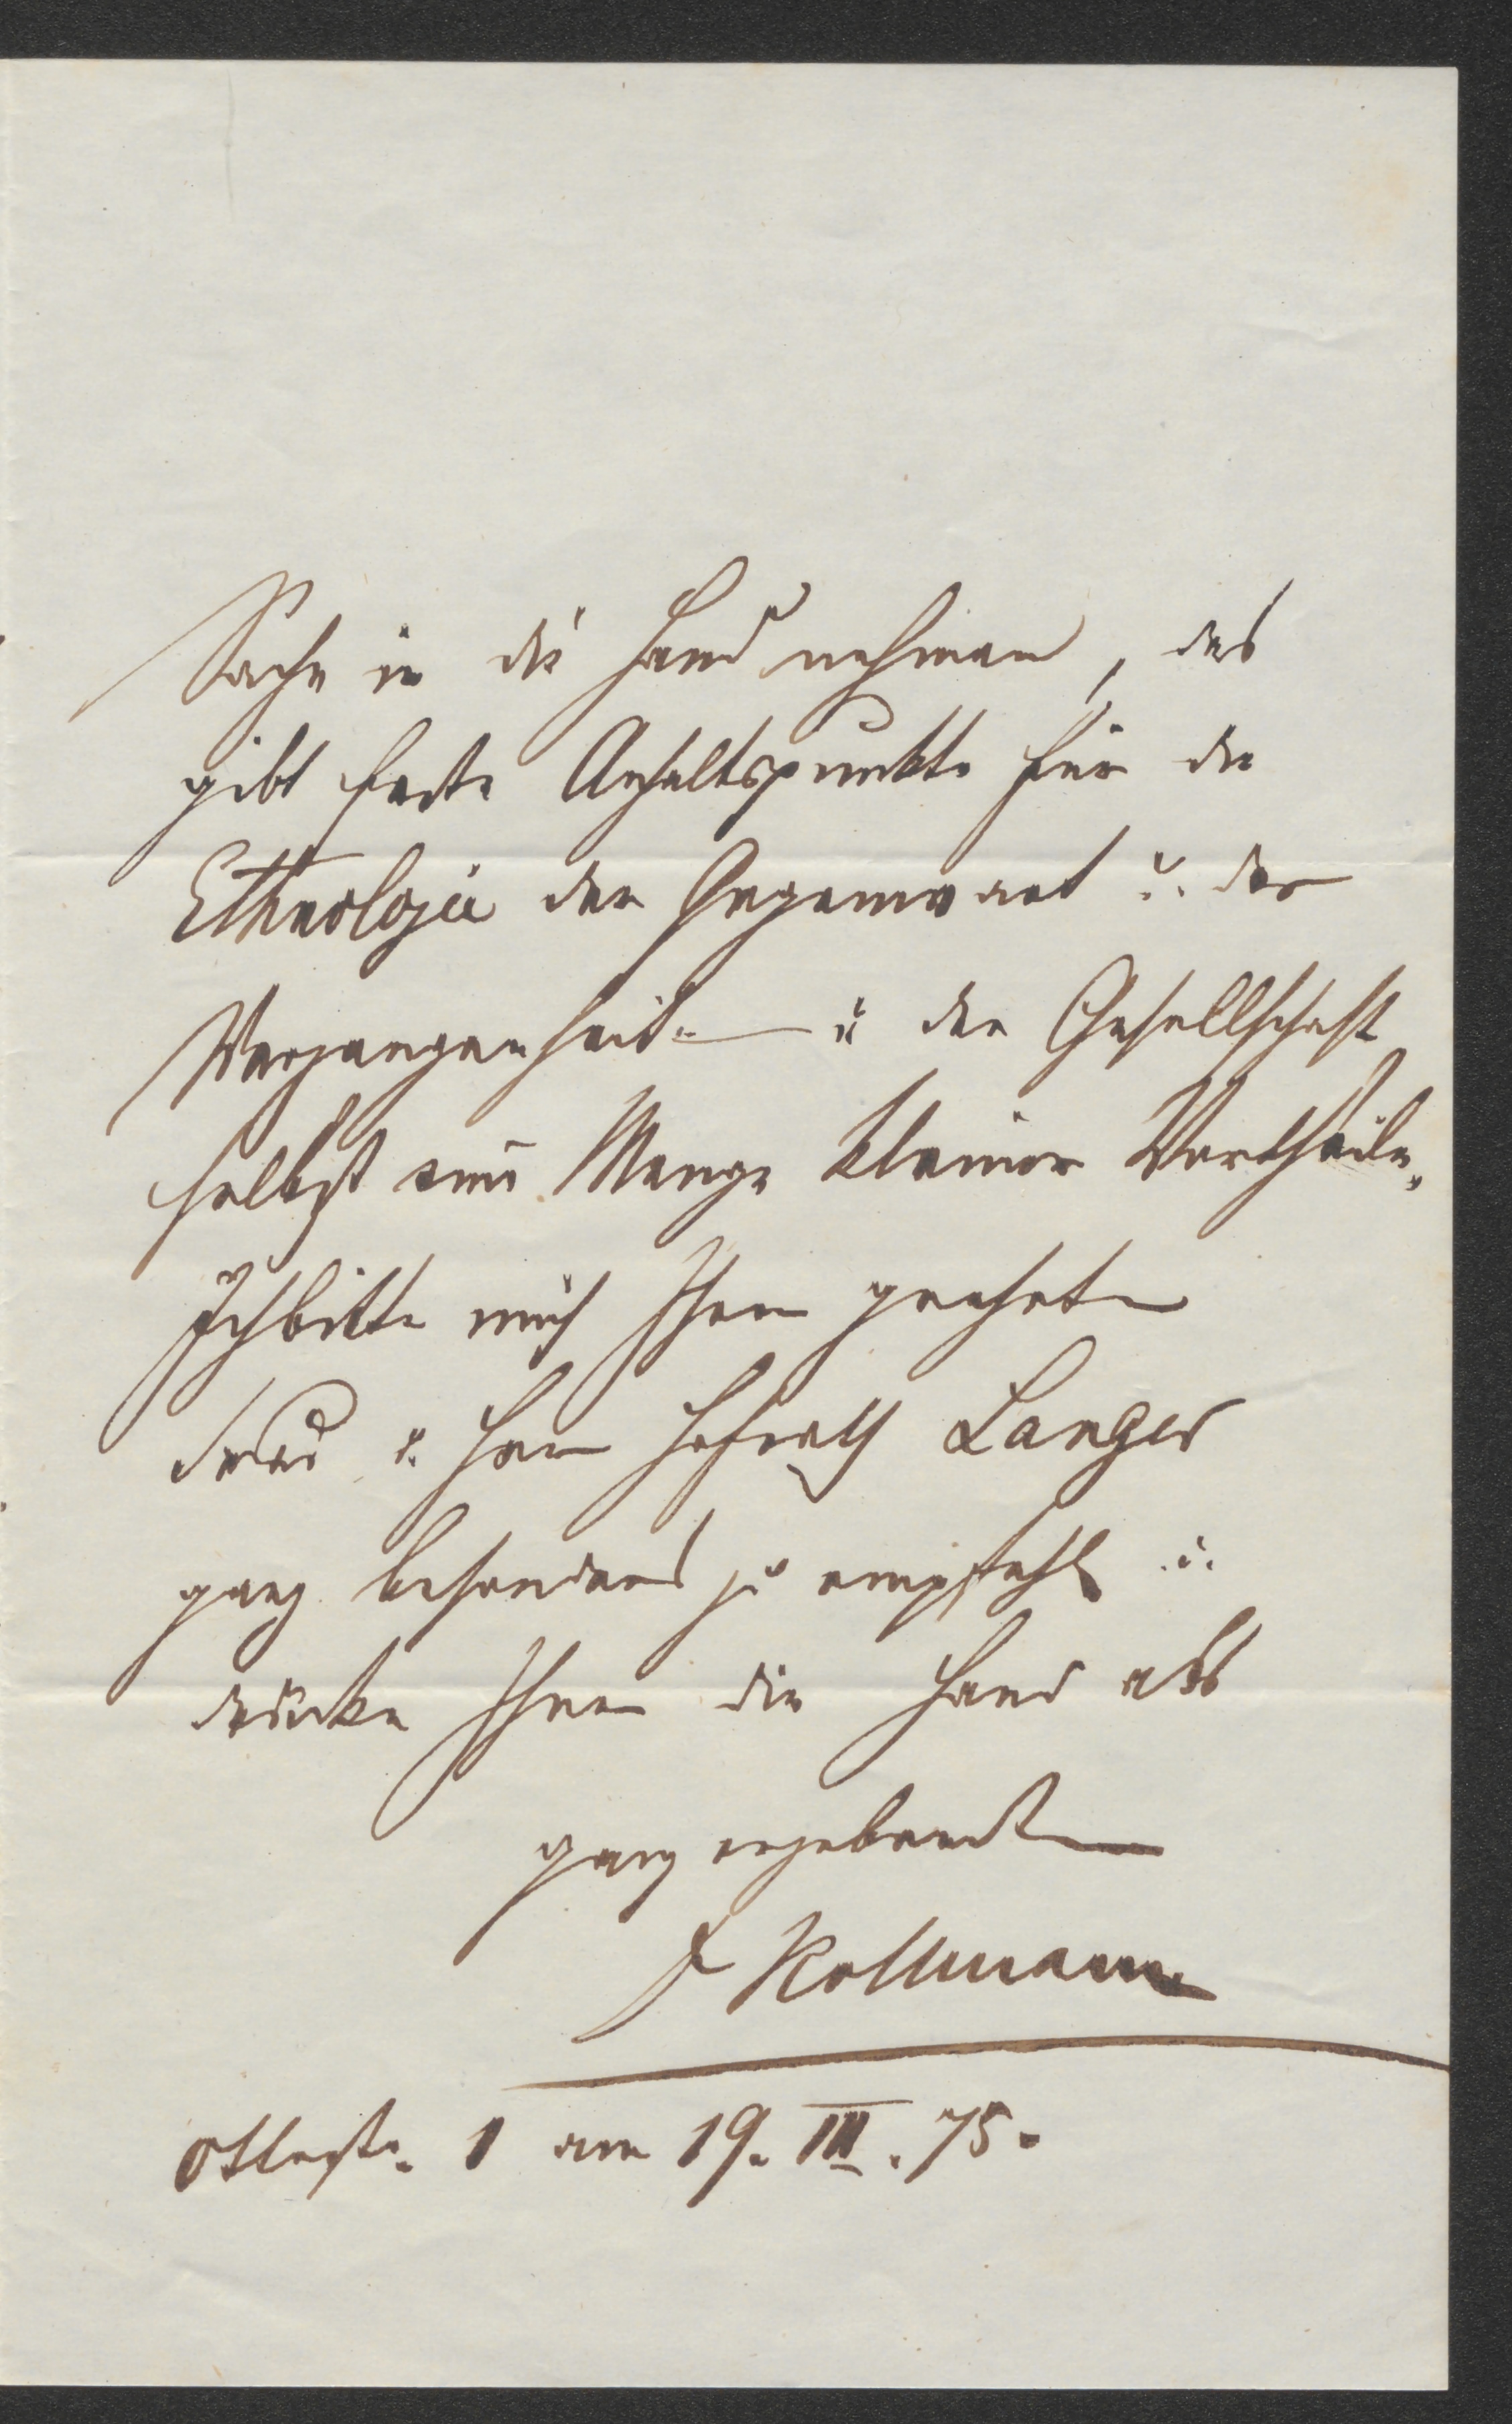 Sache in die Hand nehmen, das
gibt feste Anhaltspunkte für die
Ethnologie der Gegenwart u. der
Vergangenheit u der Gesellschaft
selbst eine Menge kleiner Vortheile.
Ich bitte mich Ihrer geehrten
Frau u. Herrn Hofrath Langer
ganz besonders zu empfehlen u.
drücke Ihnen die Hand als
ganz ergebenster
J Kollmann
Ottostr. 1 am 19. III. 75.